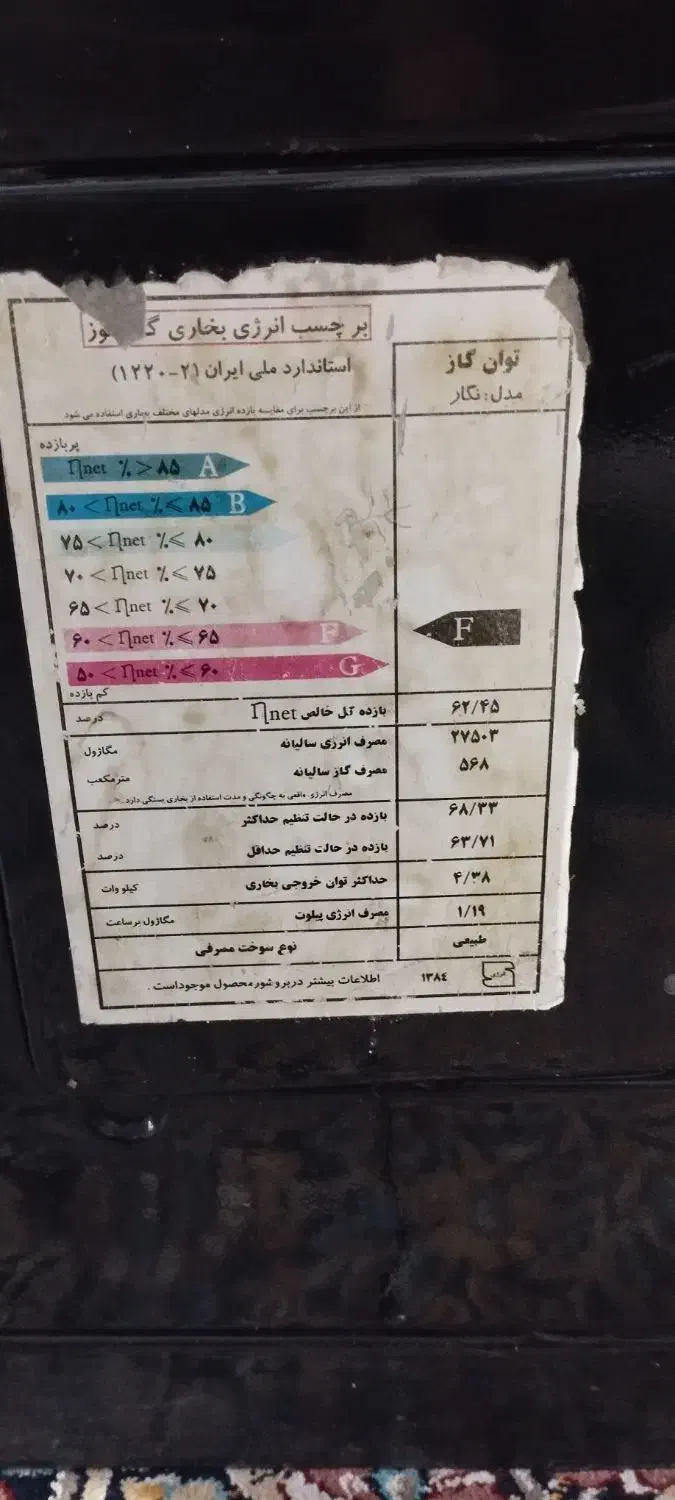 برچسب انرژی بخاری
استاندارد ملی ایران (۲-۱۲۲۰)
از این برچسب برای مقایسه بازده انرژی مدلهای مختلف بخاری استفاده می شود
توان گاز
مدل: نگار
پربازده
ηnet ٪ > ۸۵ A
۸۰ < ηnet ٪ ⩽ ۸۵ B
۷۵ < ηnet ٪ ⩽ ۸۰
۷۰ < ηnet ٪ ⩽ ۷۵
۶۵ < ηnet ٪ ⩽ ۷۰
۶۰ < ηnet ٪ ⩽ ۶۵ F
F
۵۰ < ηnet ٪ ⩽ ۶۰ G
کم بازده
بازده کل خالص ηnet درصد ۶۲/۴۵
مصرف انرژی سالیانه مگاژول ۲۷۵۰۳
مصرف گاز سالیانه مترمکعب ۵۶۸
مصرف انرژی واقعی به چگونگی و مدت استفاده از بخاری بستگی دارد.
بازده در حالت تنظیم حداکثر درصد ۶۸/۳۳
بازده در حالت تنظیم حداقل درصد ۶۳/۷۱
حداکثر توان خروجی بخاری کیلو وات ۴/۳۸
مصرف انرژی پیلوت مگاژول برساعت ۱/۱۹
نوع سوخت مصرفی طبیعی
اطلاعات بیشتر در بروشور محصول موجود است. ۱۳۸٤